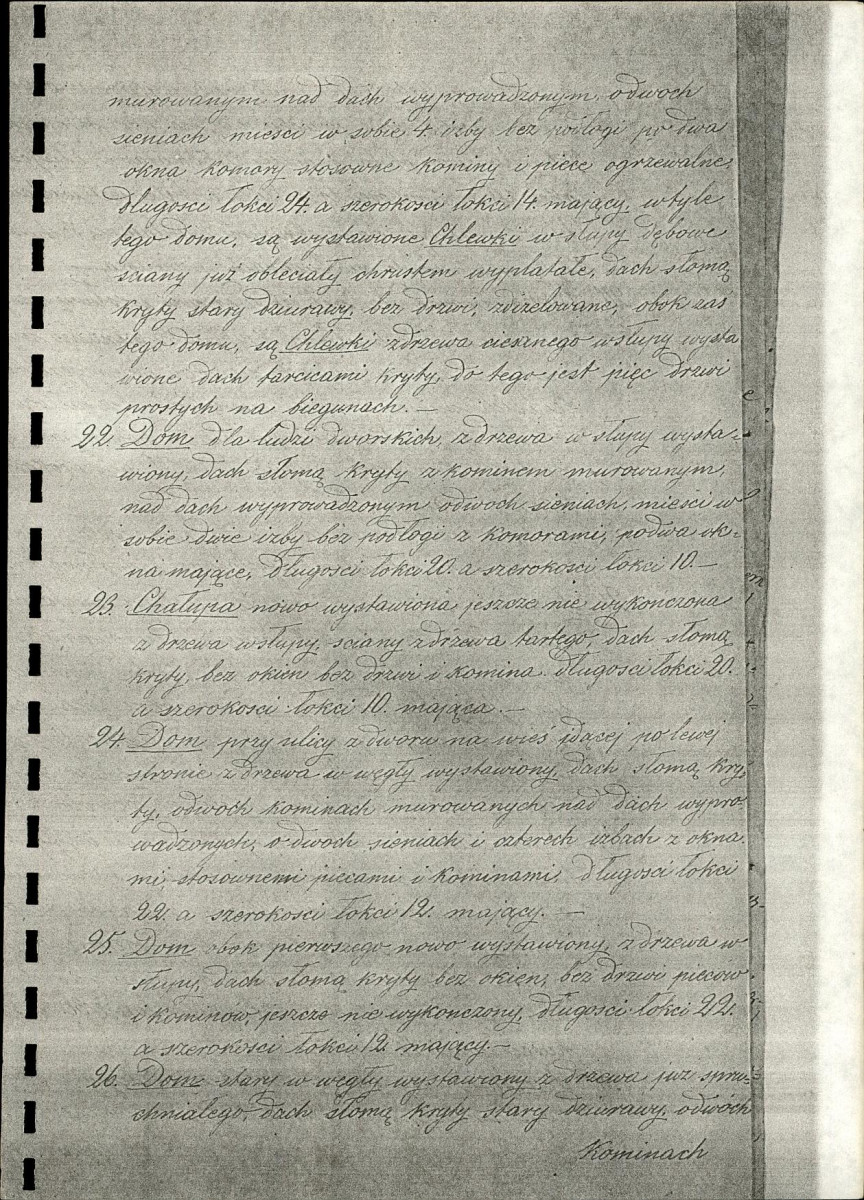 murowanym nad dach wyprowadzonym, odwoch
sieniach mieści w sobie 4. izby bez podłogi po dwa
okna komory stosowne kominy i piece ogrzewalne,
długosci łokci 24. a szerokosci łokci 14. mający, wtyle
tego domu, są wystawione Chlewki w słupy dębowe
sciany już obleciały chrustem wyplatałe, dach słomą
kryty stary dziurawy, bez drzwi, zdizelowane, obok zaś
tego domu, są Chlewki zdrzewa ciesanego wsłupy wysta
wione dach tarcicami kryty, do tego jest pięc drzwi
prostych na biegunach. —
22. Dom dla ludzi dworskich, z drzewa w słupy wysta-
wiony, dach słomą kryty z kominem murowanym,
nad dach wyprowadzonym odwoch sieniach, mieści w
sobie dwie izby bez podłogi z komorami, podwa ok-
na mające, długosci łokci 20. a szerokosci łokci 10. —
23. Chałupa nowo wystawiona jeszcze nie wykonczona
z drzewa wsłupy, sciany zdrzewa tartego dach słomą
kryty, bez okien bez drzwi i komina długosci łokci 20.
a szerokosci łokci 10. mająca. —
24. Dom przy ulicy z dworu na wieś idącej po lewej
stronie z drzewa w węgły wystawiony, dach słomą kry,
ty, odwoch kominach murowanych nad dach wypro
wadzonych, o dwoch sieniach i czterech izbach z okna
mi, stosownemi piecami i kominami, długosci łokci
22. a szerokosci łokci 12. mający. —
25. Dom obok pierwszego nowo wystawiony, z drzewa w
słupy, dach słomą kryty bez okien, bez drzwi piecow
i kominow, jeszcze nie wykonczony, długosci łokci 22.
a szerokosci łokci 12. mający. —
26. Dom stary w węgły wystawiony z drzewa juz spru-
chniałego, dach słomą kryty stary dziurawy, odwóch
Kominach